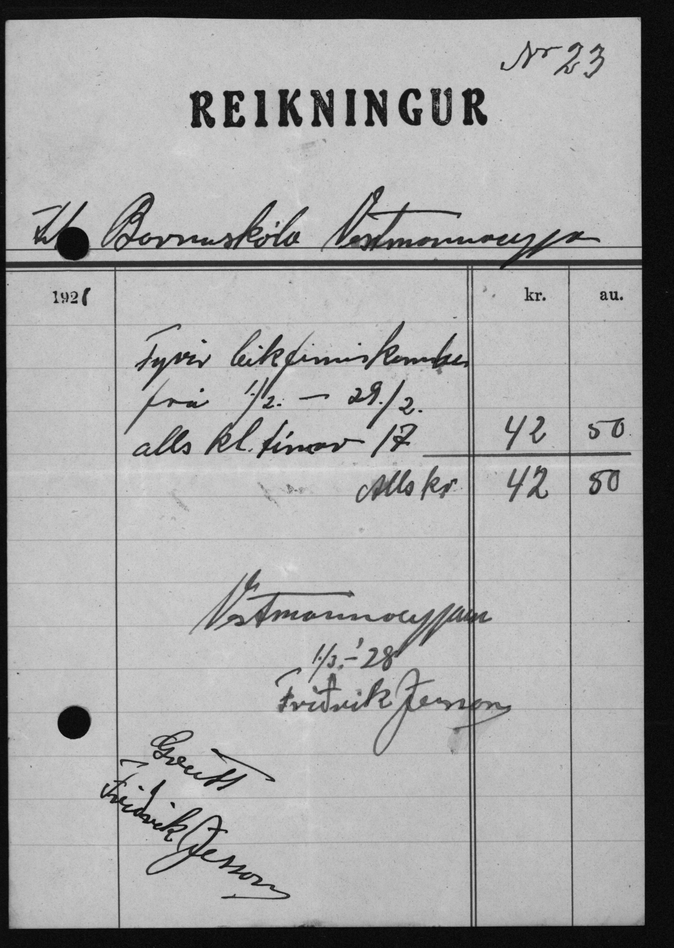 Nr 23
REIKNINGUR
Til Barnaskóla Vestmannaeyja
1928
kr. au.
Fyrir leikfimiskenslu
frá 1/2. — 29./2.
alls kl. tímar 17 42 50
Alls kr. 42 50
Vestmannaeyjum
1/3. — '28
Friðrik Jesson
Greitt
Friðrik Jesson